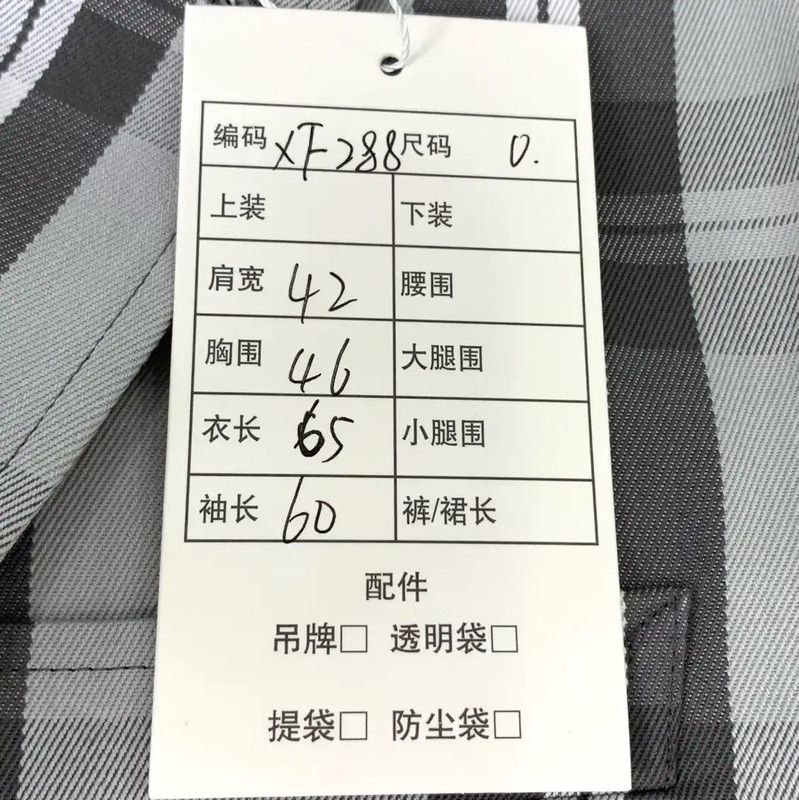 编码 XF288 尺码 0.
上装 下装
肩宽 42 腰围
胸围 46 大腿围
衣长 65 小腿围
袖长 60 裤/裙长
配件
吊牌□ 透明袋□
提袋□ 防尘袋□